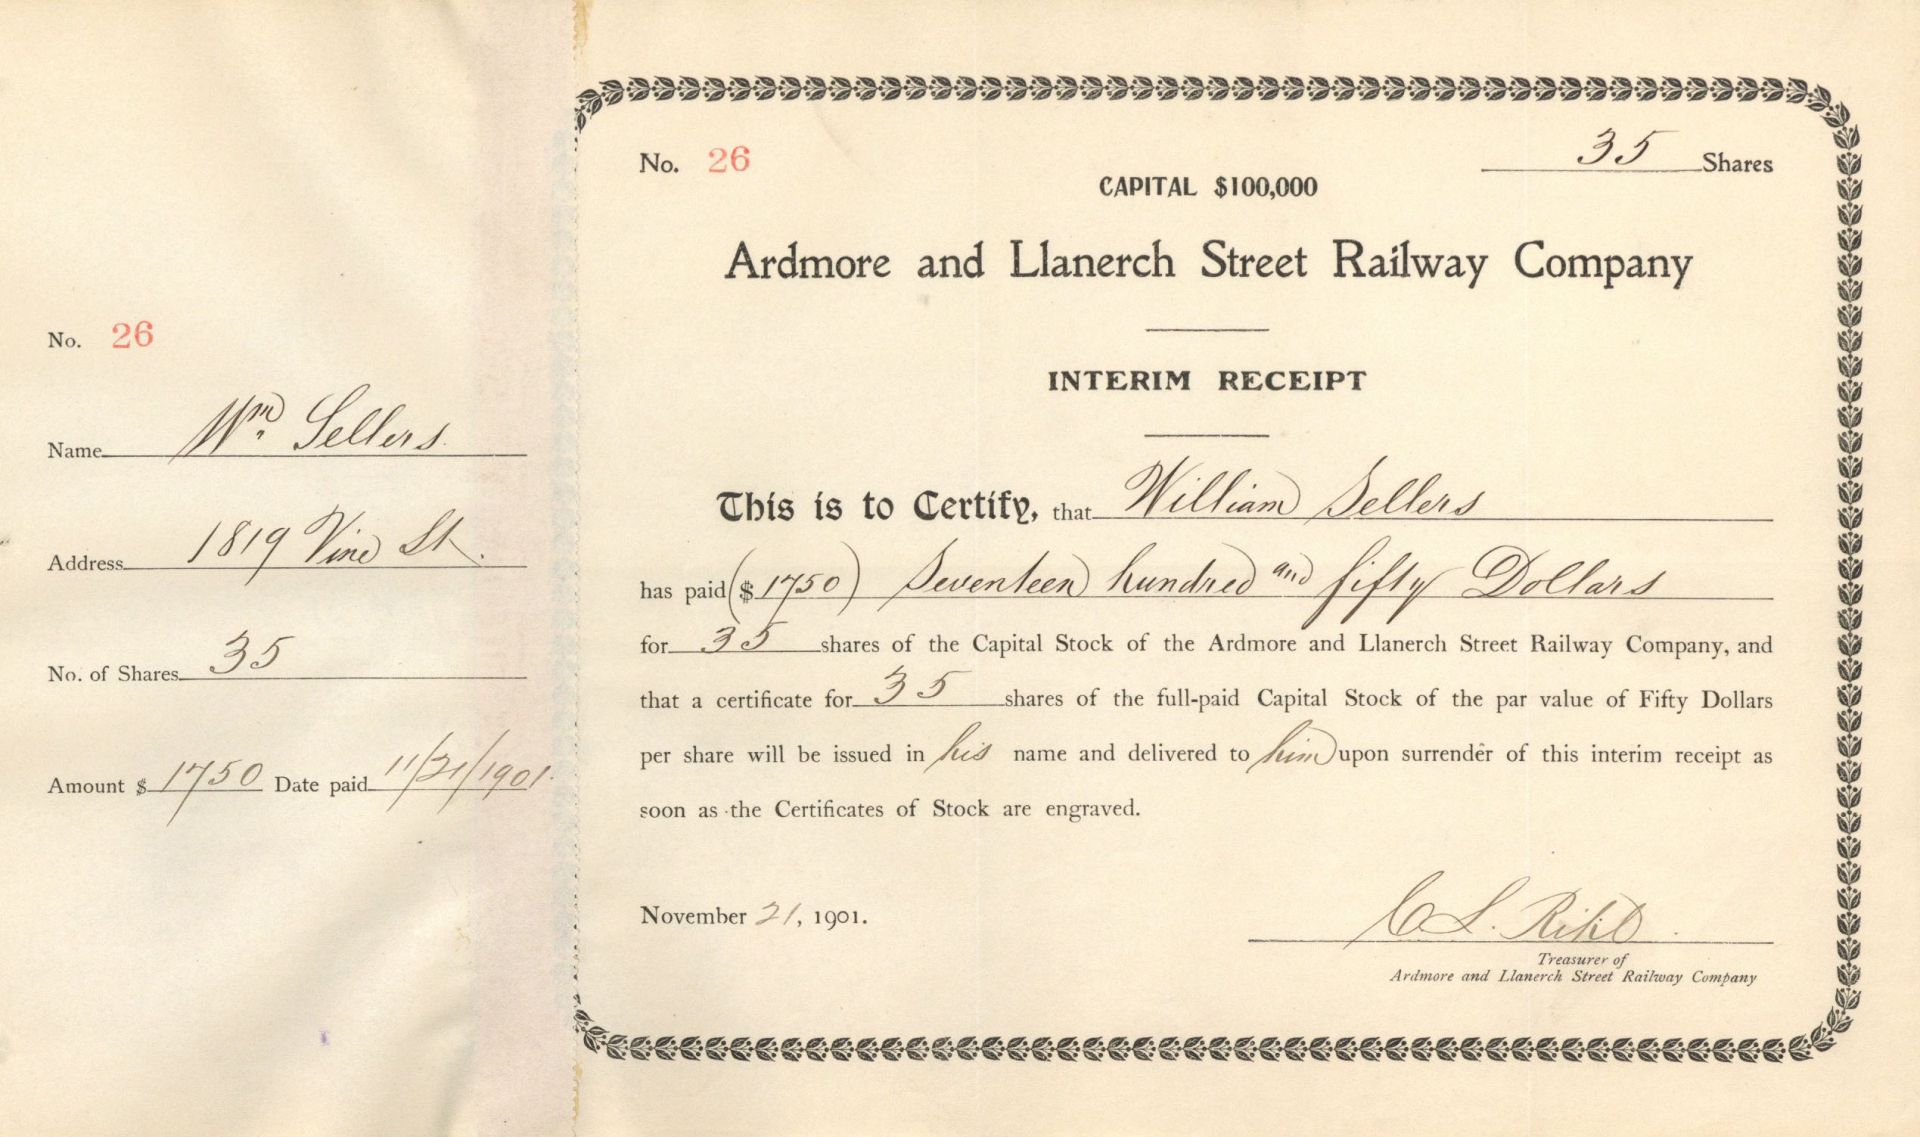 No. 26
Name Wm. Sellers.
Address 1819 Vine St.
No. of Shares 35
Amount $ 1750 Date paid 11/21/1901.
No. 26
35 Shares
CAPITAL $100,000
Ardmore and Llanerch Street Railway Company
INTERIM RECEIPT
This is to Certify, that William Sellers
has paid ($ 1750) Seventeen hundred and fifty Dollars
for 35 shares of the Capital Stock of the Ardmore and Llanerch Street Railway Company, and
that a certificate for 35 shares of the full-paid Capital Stock of the par value of Fifty Dollars
per share will be issued in his name and delivered to him upon surrender of this interim receipt as
soon as the Certificates of Stock are engraved.
November 21, 1901.
C S.
Treasurer of
Ardmore and Llanerch Street Railway Company